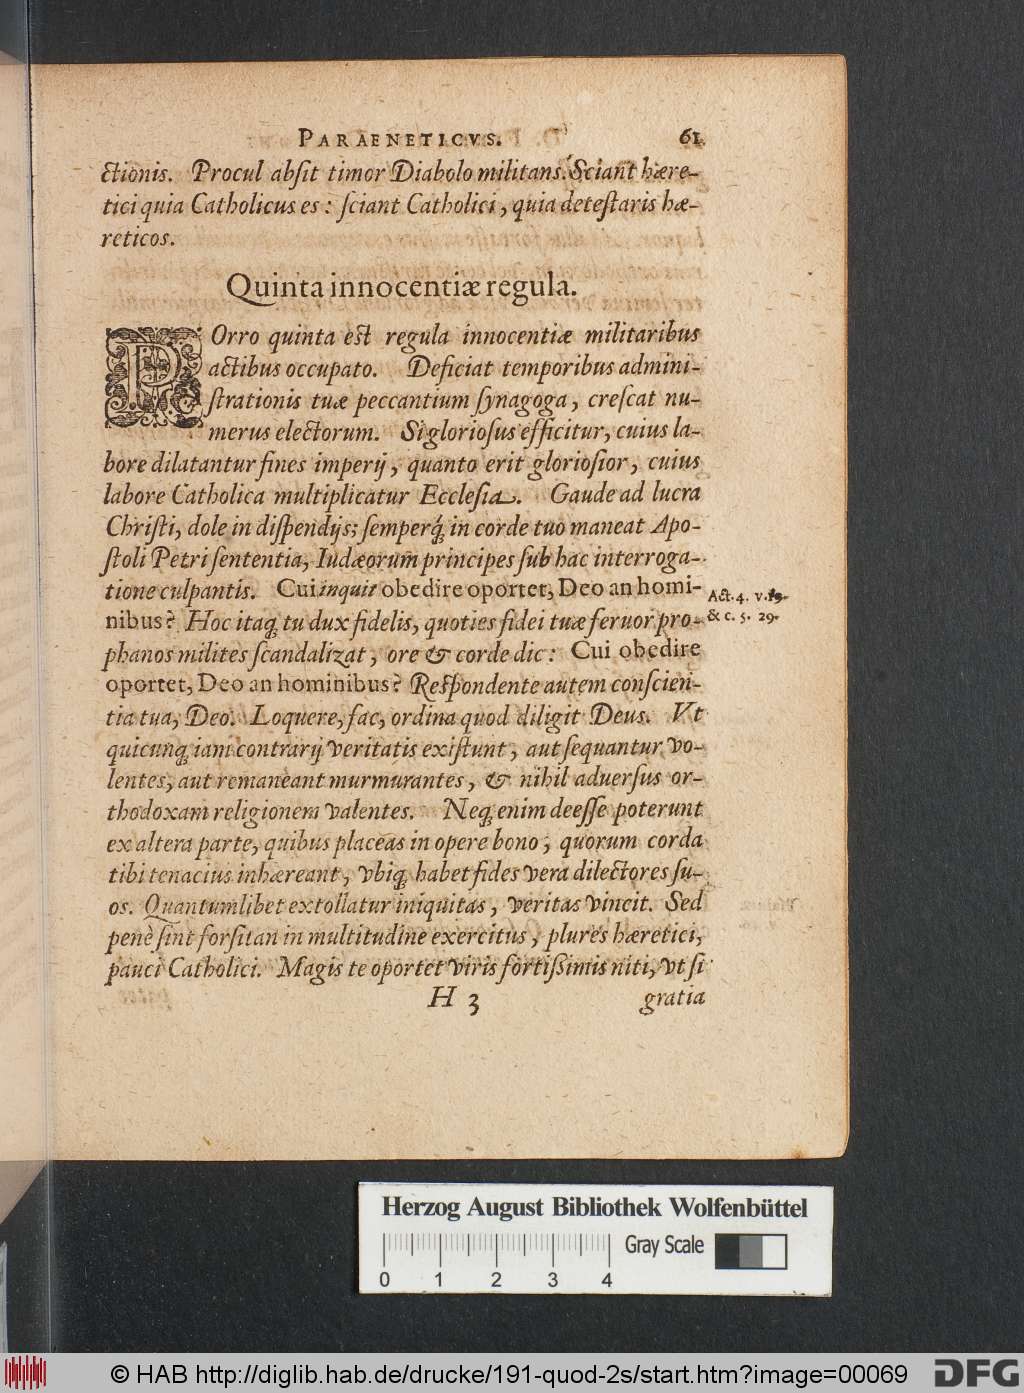 PARAENETICVS. 61
ctionis. Procul absit timor Diabolo militans. Sciant hære-
tici quia Catholicus es: sciant Catholici, quia detestaris hæ-
reticos.
Quinta innocentiæ regula.
POrro quinta est regula innocentiæ militaribus
actibus occupato. Deficiat temporibus admini-
strationis tuæ peccantium synagoga, crescat nu-
merus electorum. Si gloriosus efficitur, cuius la-
bore dilatantur fines imperij, quanto erit gloriosior, cuius
labore Catholica multiplicatur Ecclesia. Gaude ad lucra
Christi, dole in dispendijs; semperq́ in corde tuo maneat Apo-
stoli Petri sententia, Iudæorum principes sub hac interroga-
tione culpantis. Cui inquit obedire oportet, Deo an homi-
nibus? Hoc itaq; tu dux fidelis, quoties fidei tuæ feruor pro-
phanos milites scandalizat, ore & corde dic: Cui obedire
oportet, Deo an hominibus? Respondente autem conscien-
tia tua, Deo. Loquere, fac, ordina quod diligit Deus. Vt
quicunq; iam contrarij veritatis existunt, aut sequantur vo-
lentes, aut remaneant murmurantes, & nihil aduersus or-
thodoxam religionem valentes. Neq; enim deesse poterunt
ex altera parte, quibus placeas in opere bono, quorum corda
tibi tenacius inhæreant, vbiq; habet fides vera dilectores su-
os. Quantumlibet extollatur iniquitas, veritas vincit. Sed
penè sint forsitan in multitudine exercitus, plures hæretici,
pauci Catholici. Magis te oportet viris fortissimis niti, vt si
H 3 gratia
Act. 4. v. 19.
& c. 5. 29.
Herzog August Bibliothek Wolfenbüttel
Gray Scale
0 1 2 3 4
© HAB http://diglib.hab.de/drucke/191-quod-2s/start.htm?image=00069
DFG